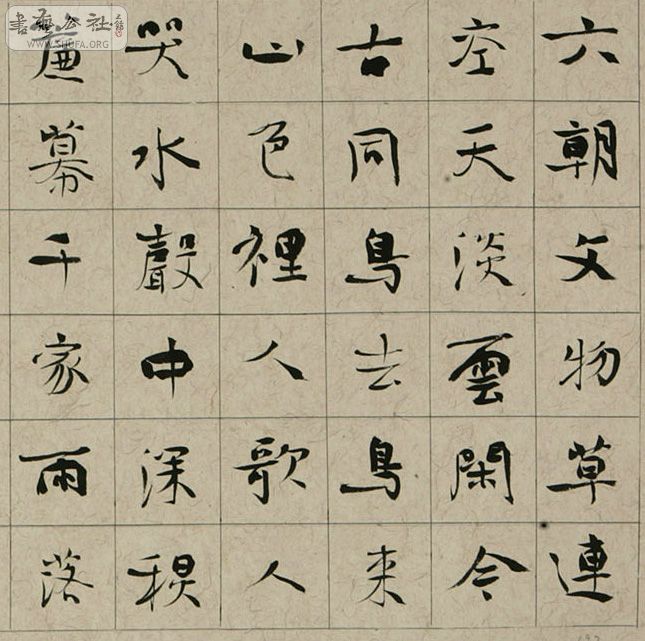 六朝文物草連
空天淡雲閑今
古同鳥去鳥來
山色裡人歌人
哭水聲中深秋
簾幕千家雨落
書藝公社
WWW.SHUFA.ORG